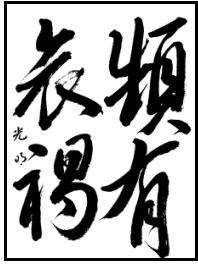 頻有
哀禍
光明